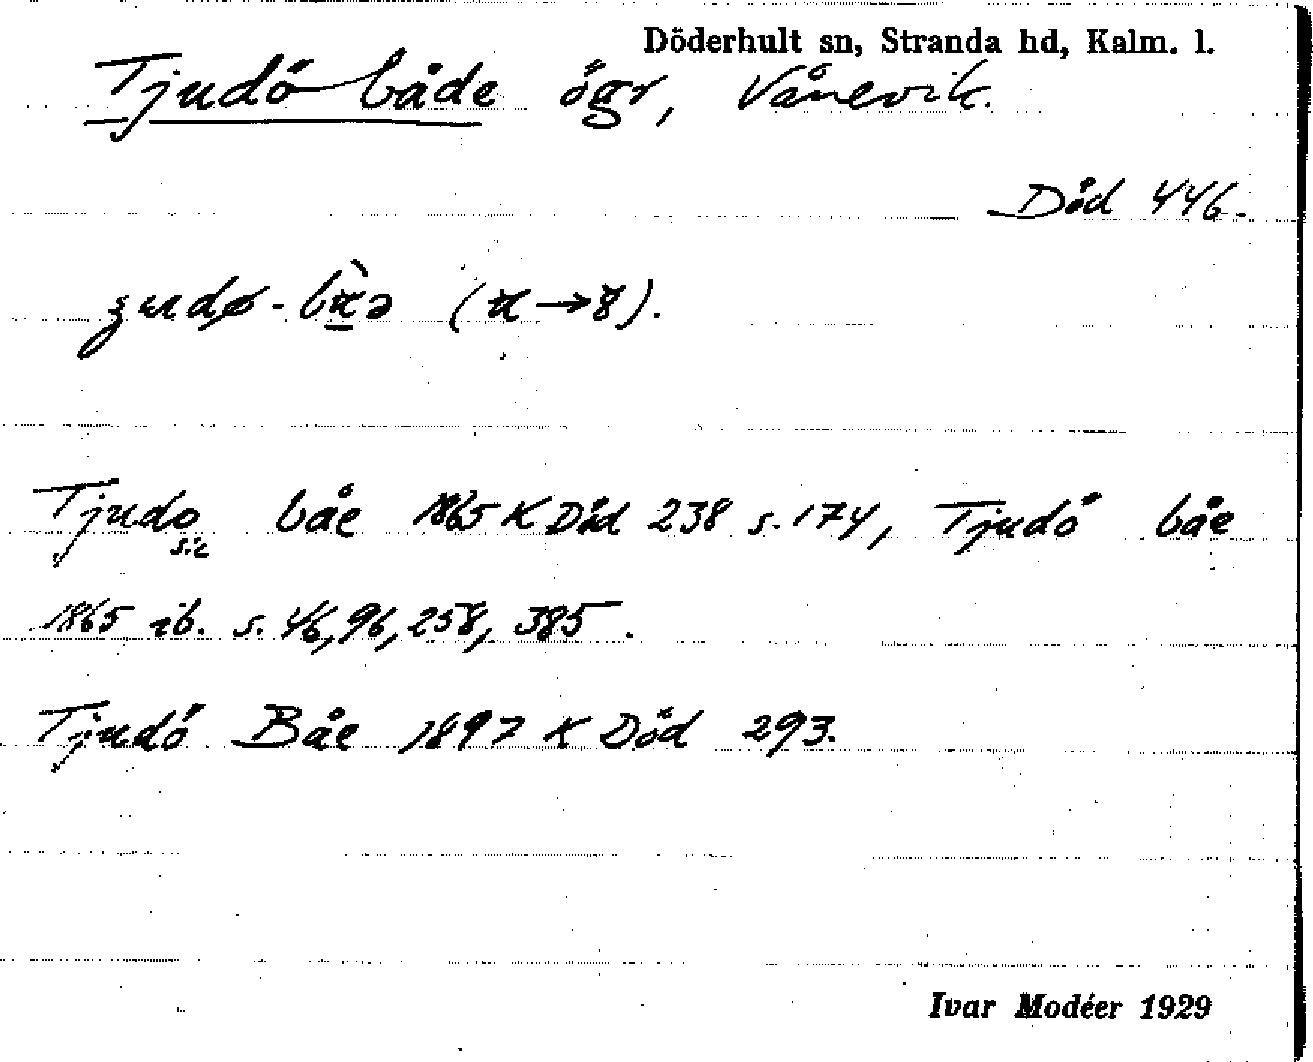 Döderhult sn, Stranda hd, Kalm. l.
Tjudö både ögr, Vånevik.
Död 446.
Tjudo båe 1865 K Död 238 s. 174, Tjudö båe
sic
1865 ib. s. 46, 96, 258, 385.
Tjudö Båe 1897 K Död 293.
Ivar Modéer 1929